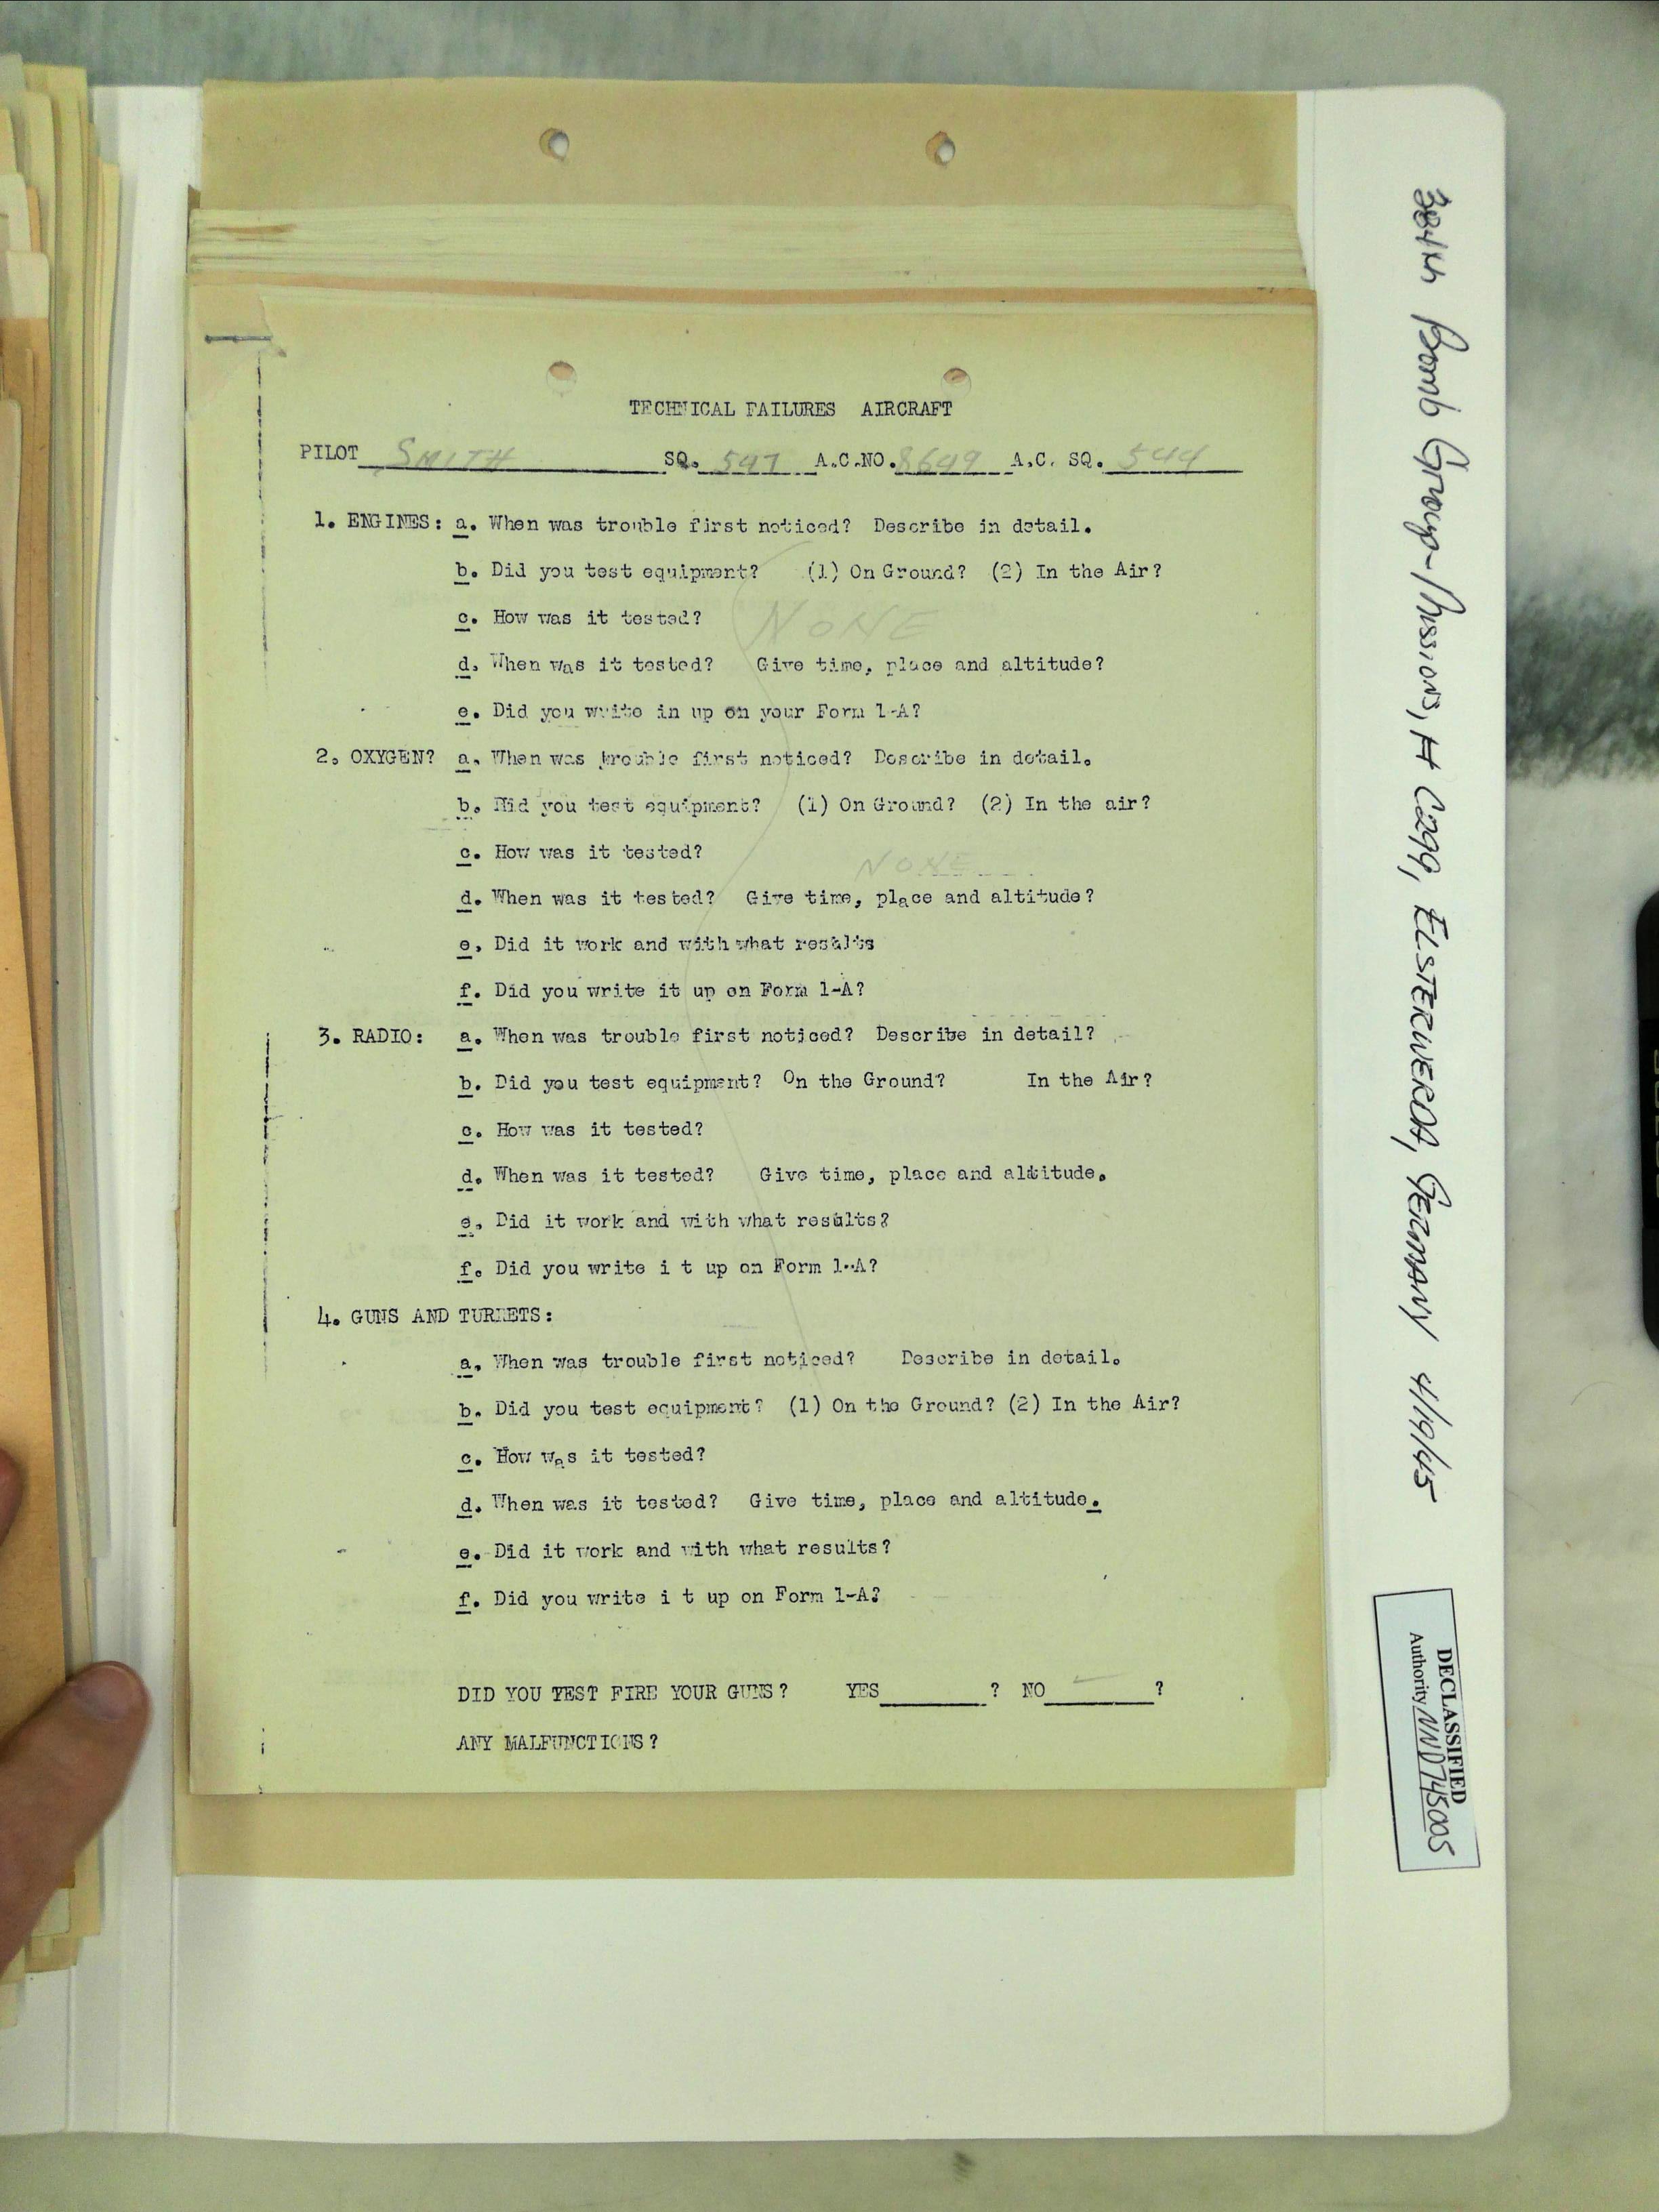 TECHNICAL FAILURES AIRCRAFT
PILOT SMITH SQ. 547 A.C.NO. 8649 A.C. SQ. 544
1. ENGINES: a. When was trouble first noticed? Describe in detail.
b. Did you test equipment? (1) On Ground? (2) In the Air?
c. How was it tested? NONE
d. When was it tested? Give time, place and altitude?
e. Did you write in up on your Form 1-A?
2. OXYGEN? a. When was trouble first noticed? Describe in detail.
b. Did you test equipment? (1) On Ground? (2) In the air?
c. How was it tested?
NONE
d. When was it tested? Give time, place and altitude?
e. Did it work and with what results
f. Did you write it up on Form 1-A?
3. RADIO: a. When was trouble first noticed? Describe in detail?
b. Did you test equipment? On the Ground? In the Air?
c. How was it tested?
d. When was it tested? Give time, place and altitude.
e. Did it work and with what results?
f. Did you write i t up on Form 1-A?
4. GUNS AND TURRETS:
a. When was trouble first noticed? Describe in detail.
b. Did you test equipment? (1) On the Ground? (2) In the Air?
c. How was it tested?
d. When was it tested? Give time, place and altitude.
e. Did it work and with what results?
f. Did you write i t up on Form 1-A?
DID YOU TEST FIRE YOUR GUNS? YES ? NO ✓ ?
ANY MALFUNCTIONS?
384th Bomb Group - Mission, # C299, ELSTERWERDA, GERMANY 4/19/45
DECLASSIFIED
Authority NND745005